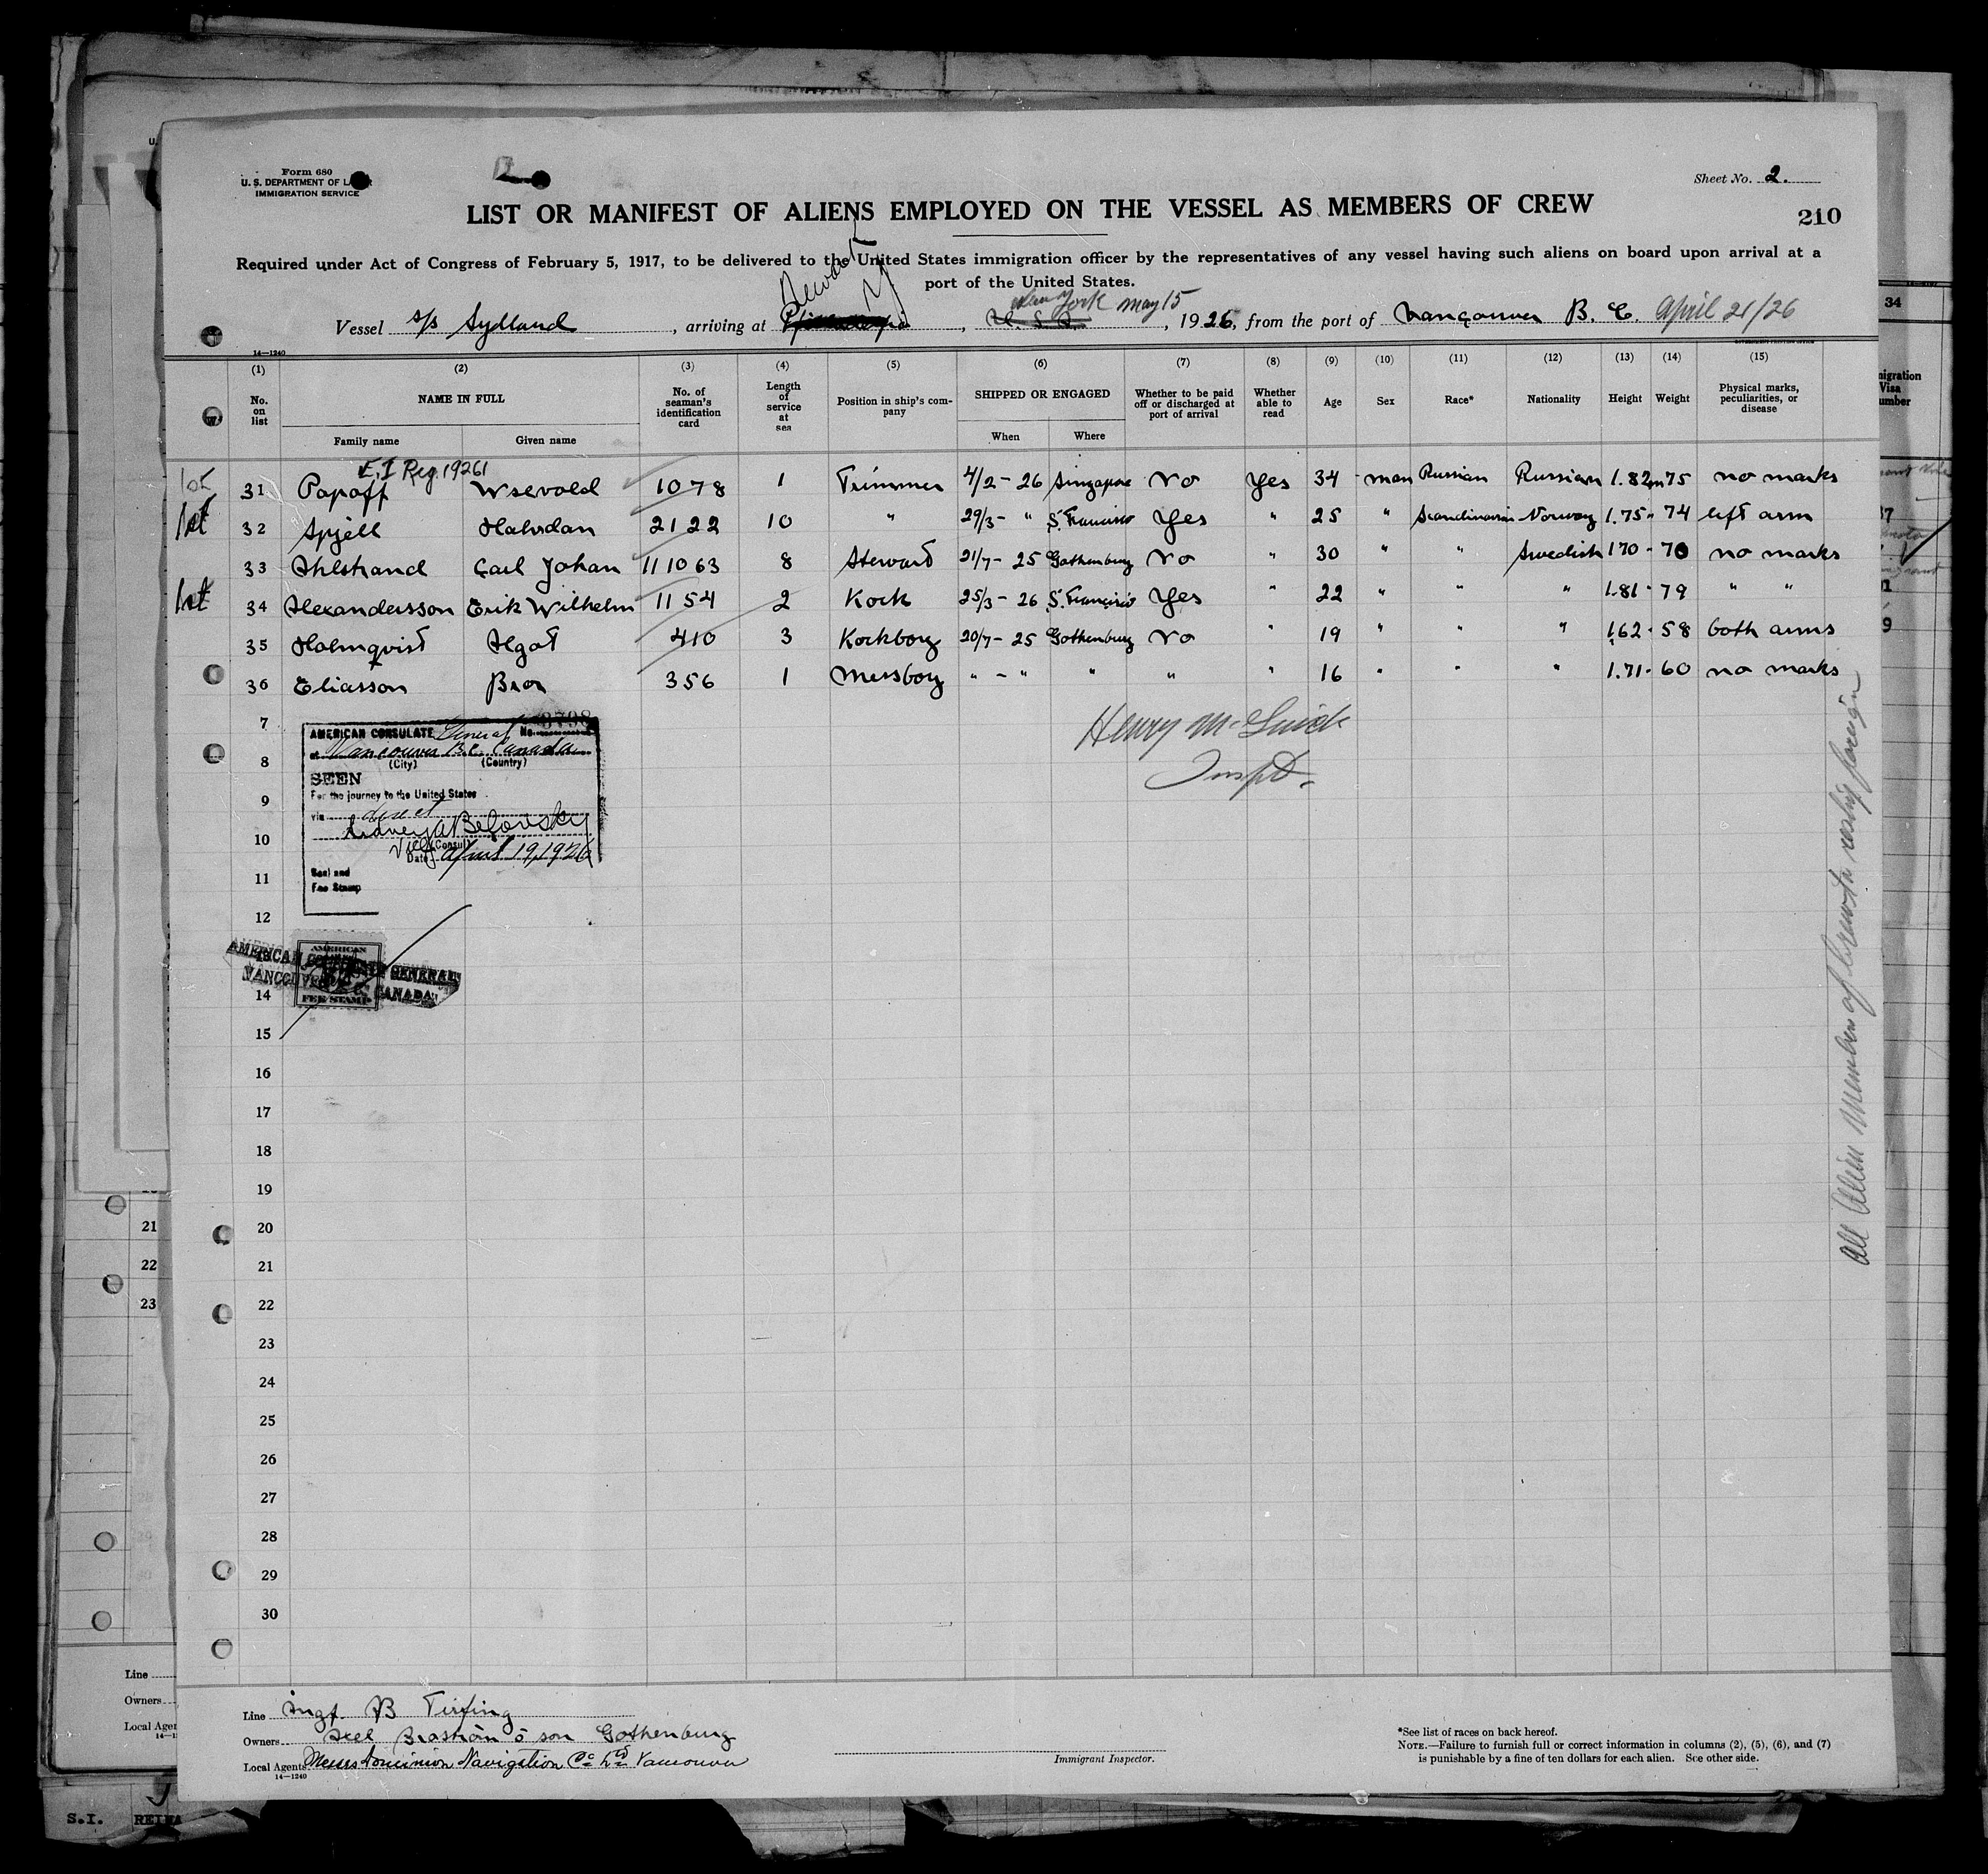 Form 680
U. S. DEPARTMENT OF LABOR
IMMIGRATION SERVICE
Sheet No. 2.
LIST OR MANIFEST OF ALIENS EMPLOYED ON THE VESSEL AS MEMBERS OF CREW
210
Required under Act of Congress of February 5, 1917, to be delivered to the United States immigration officer by the representatives of any vessel having such aliens on board upon arrival at a
port of the United States.
Newark New York May 15
Vessel s/s Sydland, arriving at Philadelphia, U. S. A., 1926, from the port of Vancouver B. C. April 21/26
14—1240
(1) (2) (3) (4) (5) (6) (7) (8) (9) (10) (11) (12) (13) (14) (15)
No. on list NAME IN FULL No. of seaman's identification card Length of service at sea Position in ship's company SHIPPED OR ENGAGED Whether to be paid off or discharged at port of arrival Whether able to read Age Sex Race* Nationality Height Weight Physical marks, peculiarities, or disease
Family name Given name When Where
E.I Reg. 19261
1st 31 Papoff Wsevold 1078 1 Trimmer 4/2-26 Singapore No Yes 34 man Russian Russian 1.82m 75 no marks
1st 32 Spjell Halvdan 2122 10 " 29/3- " S. Francisco Yes " 25 " Scandinavian Norway 1.75" 74 left arm
33 Ahlstrand Carl Johan 111063 8 Steward 21/7-25 Gothenburg No " 30 " " Swedish 170 " 70 no marks
1st 34 Alexandersson Erik Wilhelm 1154 2 Kock 25/3-26 S. Francisco Yes " 22 " " " 1.81 " 79 " "
35 Holmqvist Algot 410 3 Kockboy 20/7-25 Gothenburg No " 19 " " " 1.62 " 58 both arms
36 Eliasson Bror 356 1 Messboy " - " " " " 16 " " " 1.71 " 60 no marks
Henry McGuirk
Inspt.
7
8
9
10
11
12
14
15
16
17
18
19
20
21
22
23
24
25
26
27
28
29
30
AMERICAN CONSULATE General No. 3798
at Vancouver B.C. Canada
(City) (Country)
SEEN
For the journey to the United States
via direct
(Consul)
Date April 19, 1926
Seal and
Fee Stamp
AMERICAN CONSULATE GENERAL
VANCOUVER B.C. CANADA
AMERICAN
FEE STAMP
All Alien Members of Crew to reship foreign
Line Angf. AB Tirfing
Owners Axel Broström o son Gothenburg
Local Agents Messrs Dominion Navigation Co Ltd Vancouver
14—1240
Immigrant Inspector.
*See list of races on back hereof.
NOTE.—Failure to furnish full or correct information in columns (2), (5), (6), and (7)
is punishable by a fine of ten dollars for each alien. See other side.
21
22
23
Line
Owners
Local Agen
S.I.
34
migration
Visa
umber